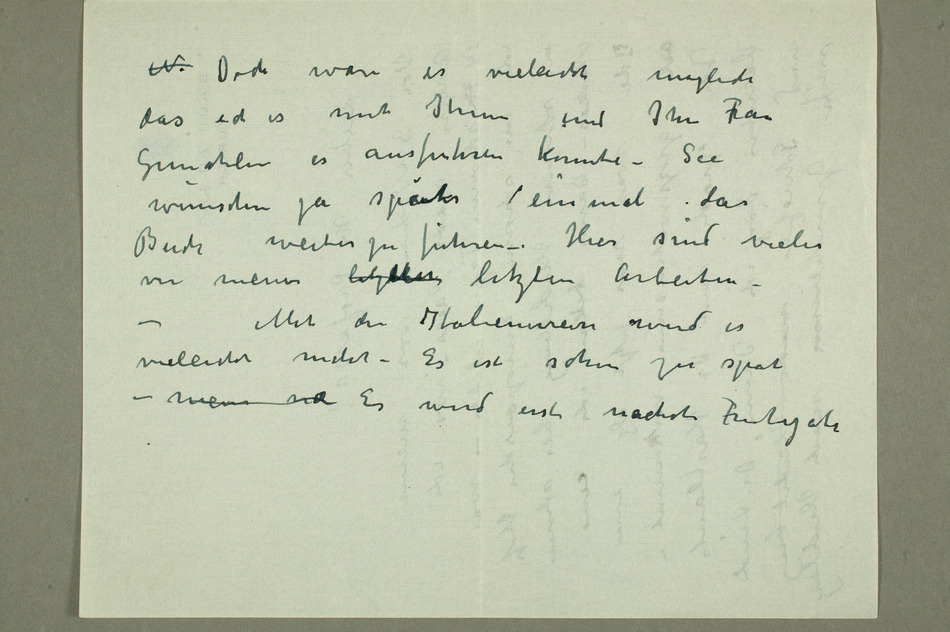 Doch wäre es vieleicht möglich
das ich es mit Ihnen und Ihr Frau
Gemahlin es ausfuhren konnte – See
wünschen ja später einmal das
Buch weiter zu fuhren –. Hier sind vieles
von meine letzten Arbeiten –
– Mit der Italienreise wird es
vieleicht nicht – Es ist schon zu spat
– Es wird erst nachste Fruhjahr